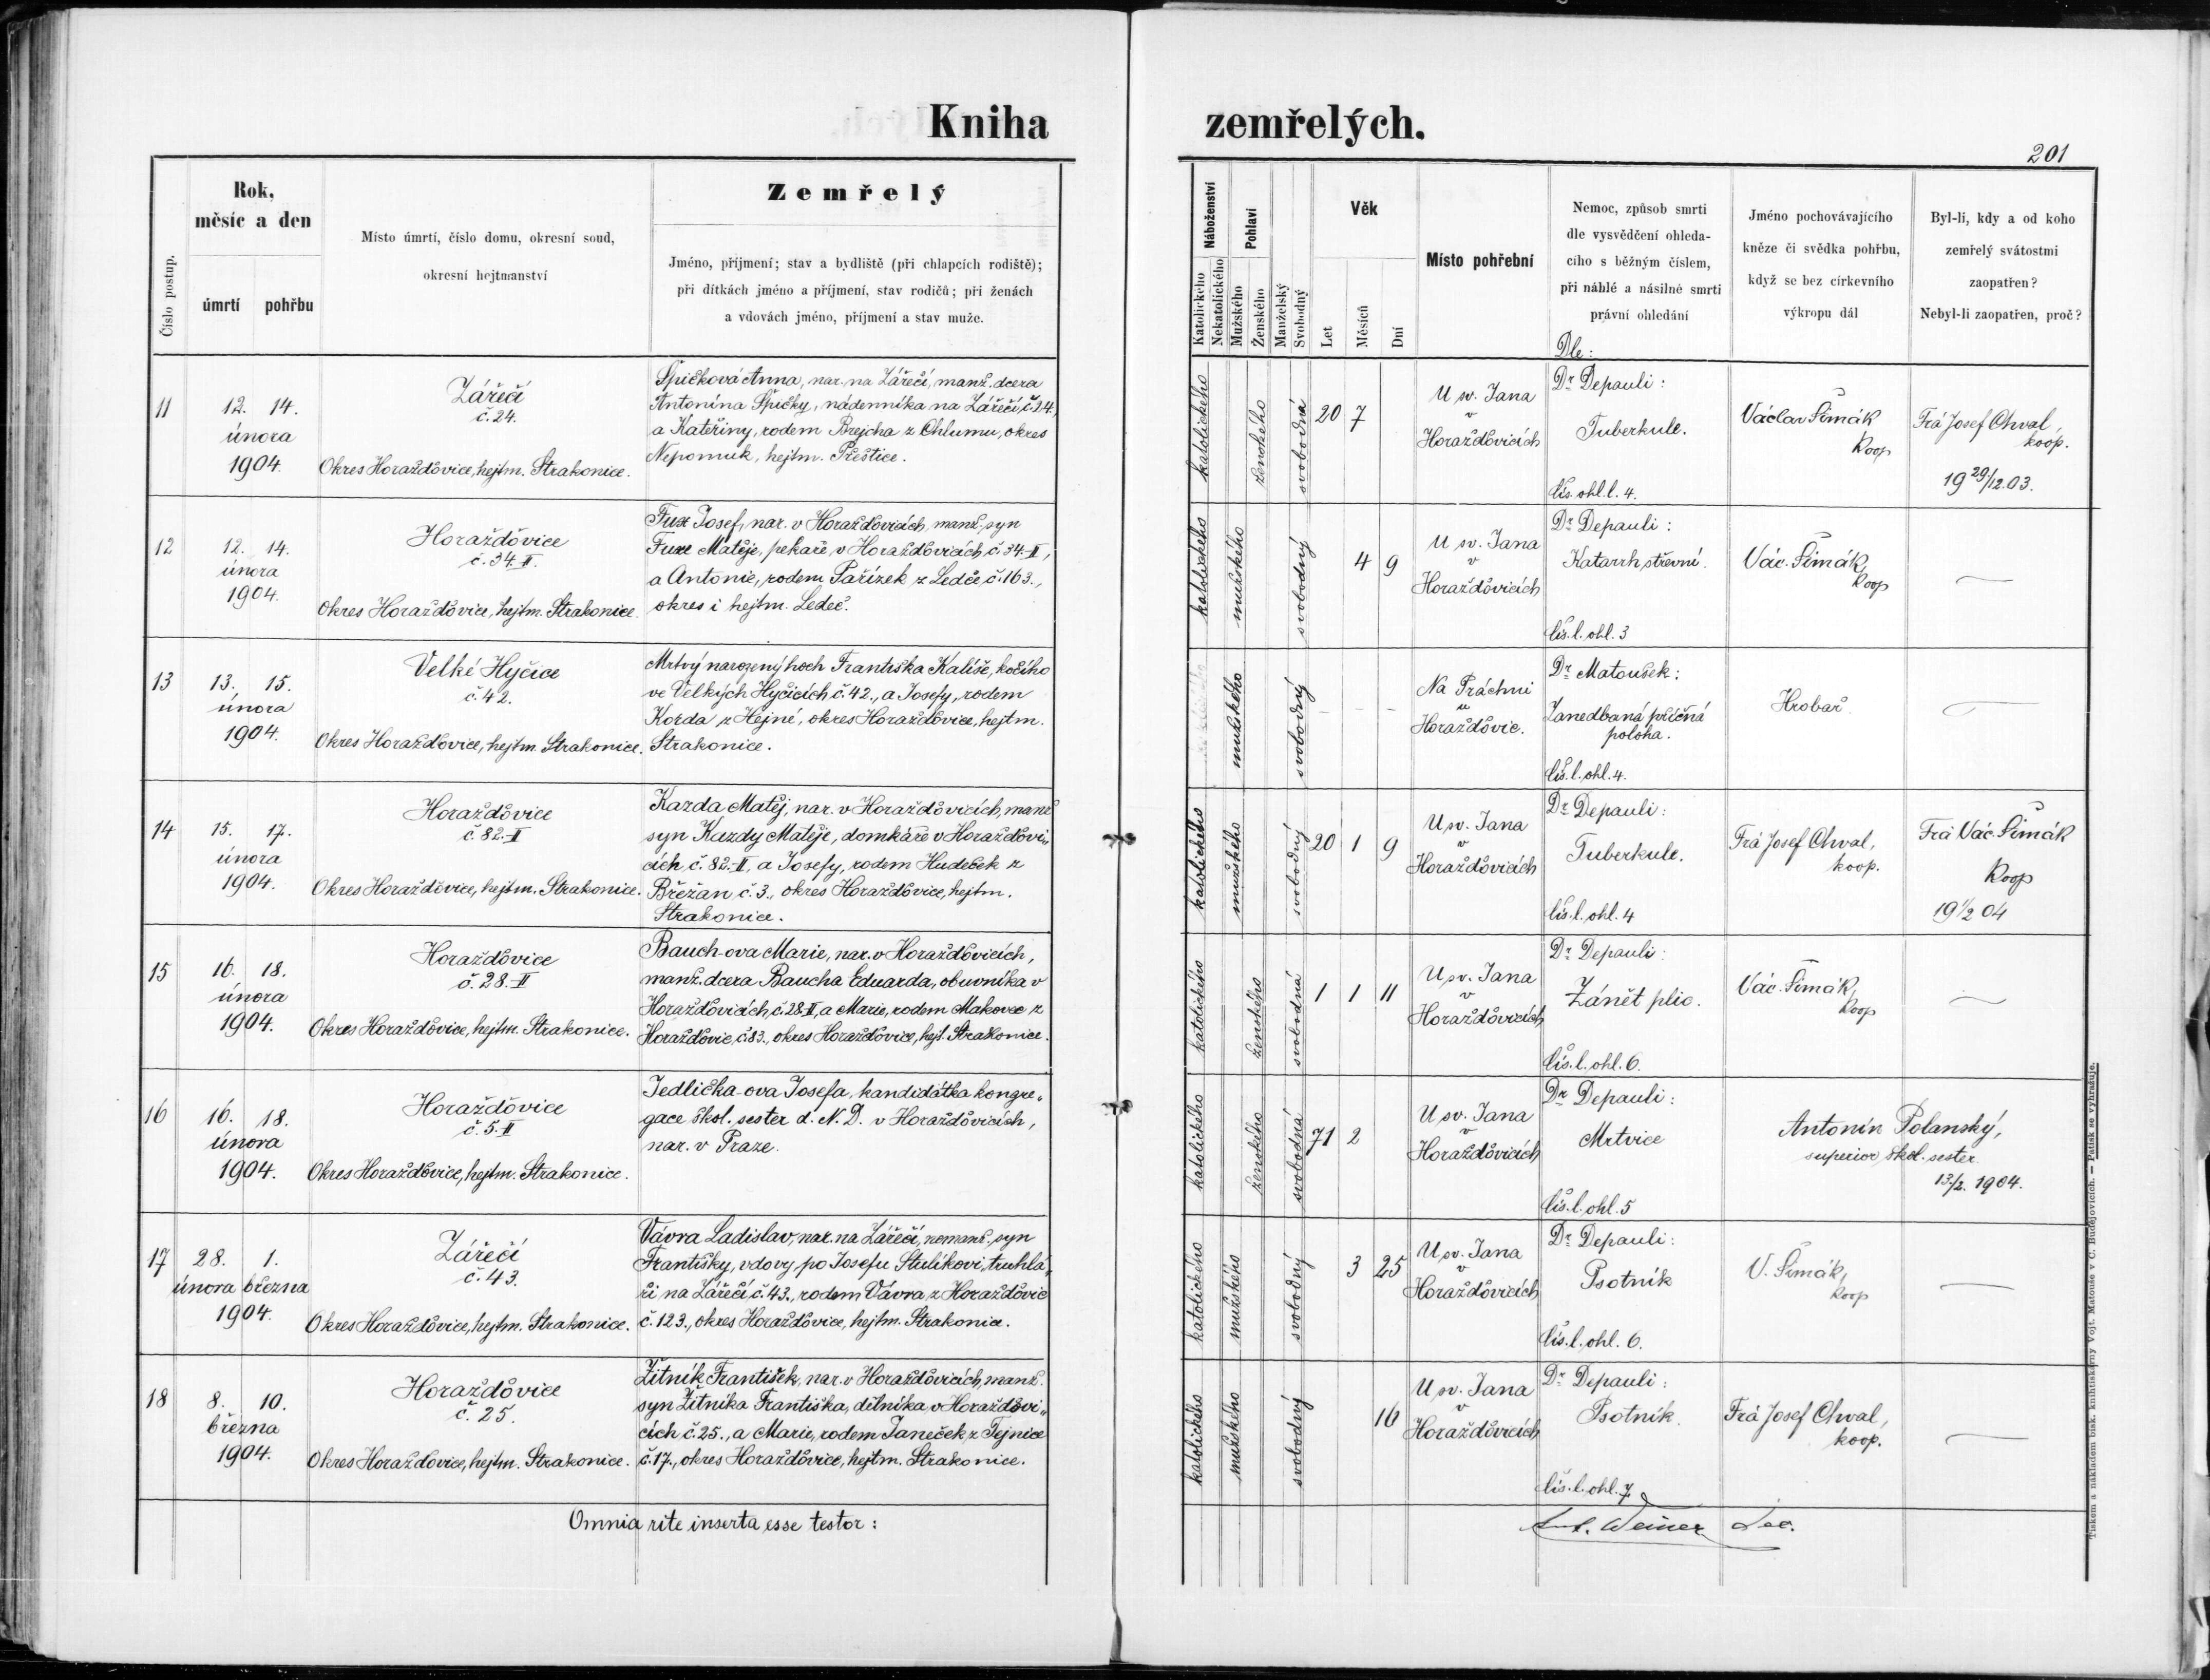 Kniha zemřelých.
201
Číslo postup.
Rok,
měsíc a den
úmrtí pohřbu
Místo úmrtí, číslo domu, okresní soud,
okresní hejtmanství
Zemřelý
Jméno, příjmení; stav a bydliště (při chlapcích rodiště);
při dítkách jméno a příjmení, stav rodičů; při ženách
a vdovách jméno, příjmení a stav muže.
Náboženství
Katolického
Nekatolického
Pohlaví
Mužského
Ženského
Manželský
Svobodný
Věk
Let
Měsíců
Dní
Místo pohřební
Nemoc, způsob smrti
dle vysvědčení ohleda-
cího s běžným číslem,
při náhlé a násilné smrti
právní ohledání
Dle:
Jméno pochovávajícího
kněze či svědka pohřbu,
když se bez církevního
výkropu dál
Byl-li, kdy a od koho
zemřelý svátostmi
zaopatřen?
Nebyl-li zaopatřen, proč?
11
12. 14.
února
1904.
Zářečí
č. 24.
Okres Horažďovice, hejtm. Strakonice.
Špičková Anna, nar. na Zářečí, manž. dcera
Antonína Špičky, nádenníka na Zářečí, č. 24.,
a Kateřiny, rodem Brejcha z Chlumu, okres
Nepomuk, hejtm. Přeštice.
katolického
ženského
svobodná
20 7
U sv. Jana
v
Horažďovicích
Dr Depauli:
Tuberkule.
čís. ohl. l. 4.
Václav Šimák
koop
Frá Josef Chval,
koop.
19 29/12 03.
12
12. 14.
února
1904.
Horažďovice
č. 34.-II.
Okres Horažďovice, hejtm. Strakonice.
Fux Josef, nar. v Horažďovicích, manž. syn
Fuxe Matěje, pekaře v Horažďovicích č. 34.-II,
a Antonie, rodem Pařízek z Ledče č. 163.,
okres i hejtm. Ledeč.
katolického
mužského
svobodný
4 9
U sv. Jana
v
Horažďovicích
Dr Depauli:
Katarrh střevní.
čís. l. ohl. 3
Vác. Šimák,
koop
—
13
13. 15.
února
1904.
Velké Hyčice
č. 42.
Okres Horažďovice, hejtm. Strakonice.
Mrtvý narozený hoch Františka Kalíše, kočího
ve Velkých Hyčicích č. 42., a Josefy, rodem
Korda z Hejné, okres Horažďovice, hejtm.
Strakonice.
mužského
svobodný
– – –
Na Práchni
u
Horažďovic.
Dr Matoušek:
Zanedbaná příčná
poloha.
čís. l. ohl. 4.
Hrobař
—
14
15. 17.
února
1904.
Horažďovice
č. 82.-II
Okres Horažďovice, hejtm. Strakonice.
Kazda Matěj, nar. v Horažďovicích, manž
syn Kazdy Matěje, domkáře v Horažďovi„
cích č. 82.-II, a Josefy, rodem Hudeček z
Břežan č. 3., okres Horažďovice, hejtm.
Strakonice.
katolického
mužského
svobodný
20 1 9
U sv. Jana
v
Horažďovicích
Dr Depauli:
Tuberkule.
čís. l. ohl. 4
Frá Josef Chval,
koop.
Frá Vác. Šimák
koop
19 1/2 04
15
16. 18.
února
1904.
Horažďovice
č. 28.-II
Okres Horažďovice, hejtm. Strakonice.
Bauch-ova Marie, nar. v Horažďovicích,
manž. dcera Baucha Eduarda, obuvníka v
Horažďovicích, č. 28.-II, a Marie, rodem Makovec z
Horažďovic, č. 83., okres Horažďovice, hejt. Strakonice.
katolického
ženského
svobodná
1 1 11
U sv. Jana
v
Horažďovicích
Dr Depauli:
Zánět plic.
čís. l. ohl. 6.
Vác. Šimák,
koop
—
16
16. 18.
února
1904.
Horažďovice
č. 5.-II
Okres Horažďovice, hejtm. Strakonice.
Jedlička-ova Josefa, kandidátka kongre„
gace škol. sester d. N. D. v Horažďovicích,
nar. v Praze.
katolického
ženského
svobodná
71 2
U sv. Jana
v
Horažďovicích
Dr Depauli:
Mrtvice
čís. l. ohl. 5
Antonín Polanský,
superior škol. sester
13/2. 1904.
17
28. 1.
února března
1904.
Zářečí
č. 43.
Okres Horažďovice, hejtm. Strakonice.
Vávra Ladislav, nar. na Zářečí, nemanž. syn
Františky, vdovy po Josefu Stulíkovi, truhlá„
ři na Zářečí č. 43., rodem Vávra z Horažďovic
č. 123., okres Horažďovice, hejtm. Strakonice.
katolického
mužského
svobodný
3 25
U sv. Jana
v
Horažďovicích
Dr Depauli:
Psotník
čís. l. ohl. 6.
V. Šimák,
koop
—
18
8. 10.
března
1904.
Horažďovice
č. 25.
Okres Horažďovice, hejtm. Strakonice.
Žitník František, nar. v Horažďovicích, manž.
syn Žitníka Františka, dělníka v Horažďovi„
cích č. 25., a Marie, rodem Janeček z Tejnice
č. 17., okres Horažďovice, hejtm. Strakonice.
katolického
mužského
svobodný
16
U sv. Jana
v
Horažďovicích
Dr Depauli:
Psotník.
čís. l. ohl. 7.
Frá Josef Chval,
koop.
—
Omnia rite inserta esse testor:
Ant. Weiner Dec.
Tiskem a nákladem bisk. knihtiskárny Vojt. Matouše v Č. Budějovicích. — Patisk se vyhražuje.